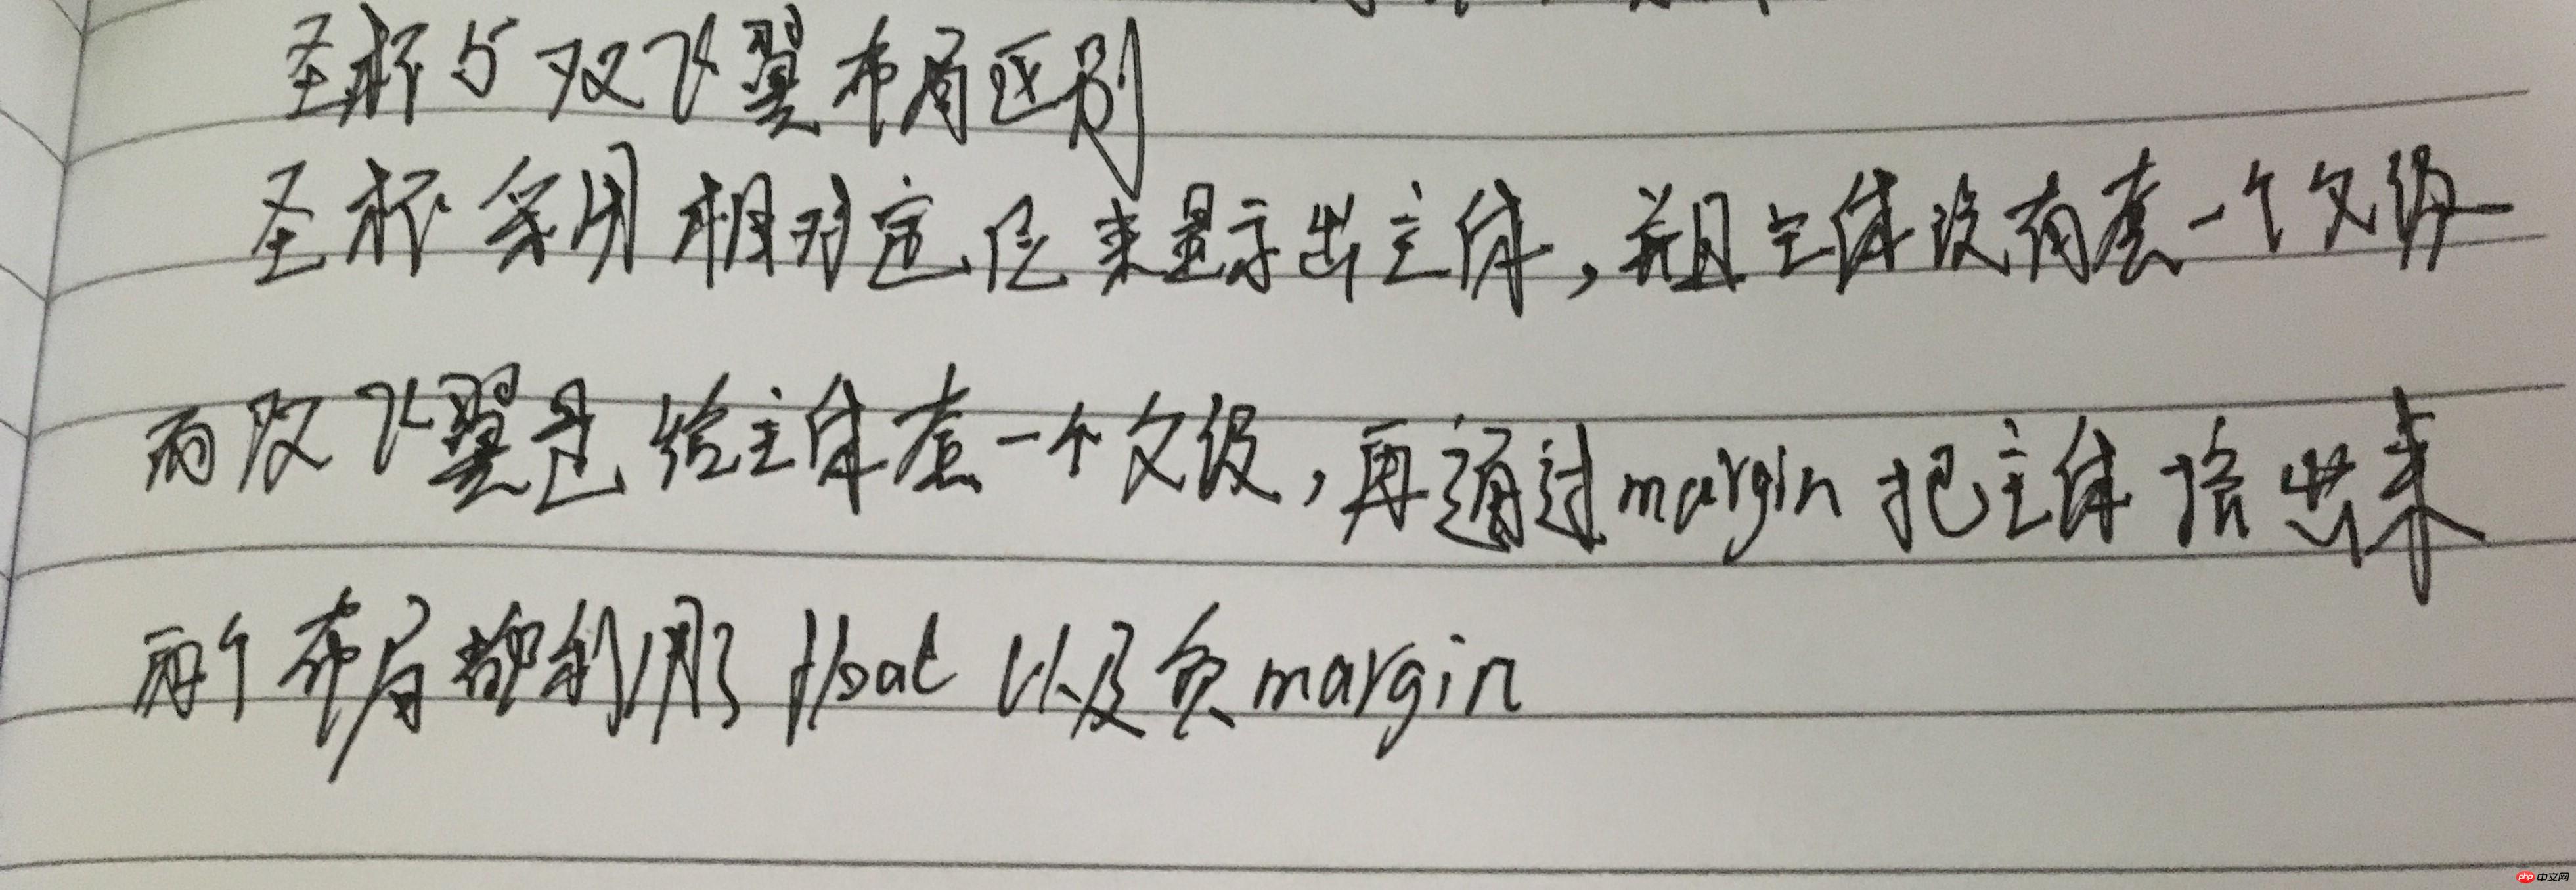 圣杯与双飞翼布局区别
圣杯采用相对定位来显示出主体，并且主体没有套一个父级
而双飞翼是给主体套一个父级，再通过margin把主体挤出来
两个布局都利用了float以及负margin
php中文网